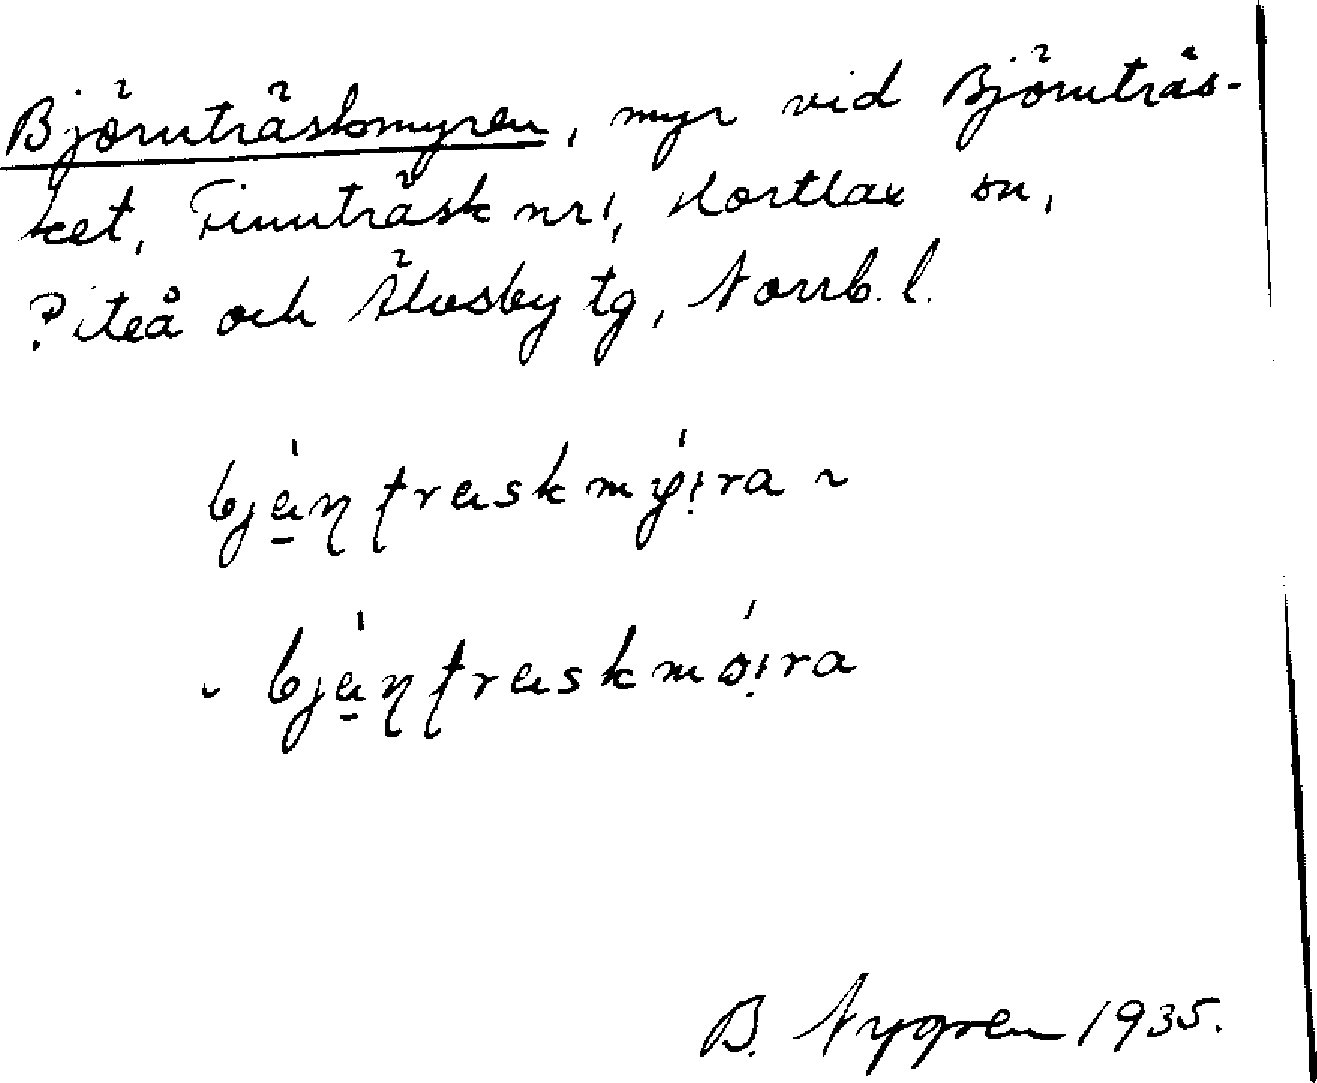 Björnträskmyren, myr vid Björnträs-
ket, Finnträsk nr 1, Hortlax sn,
Piteå och Älvsby tg, Norrb. l.
bjä̱́ɳʈraskmý:ra ~
~ bjä̱́ɳʈraskmö́:ra
B. Nygren 1935.